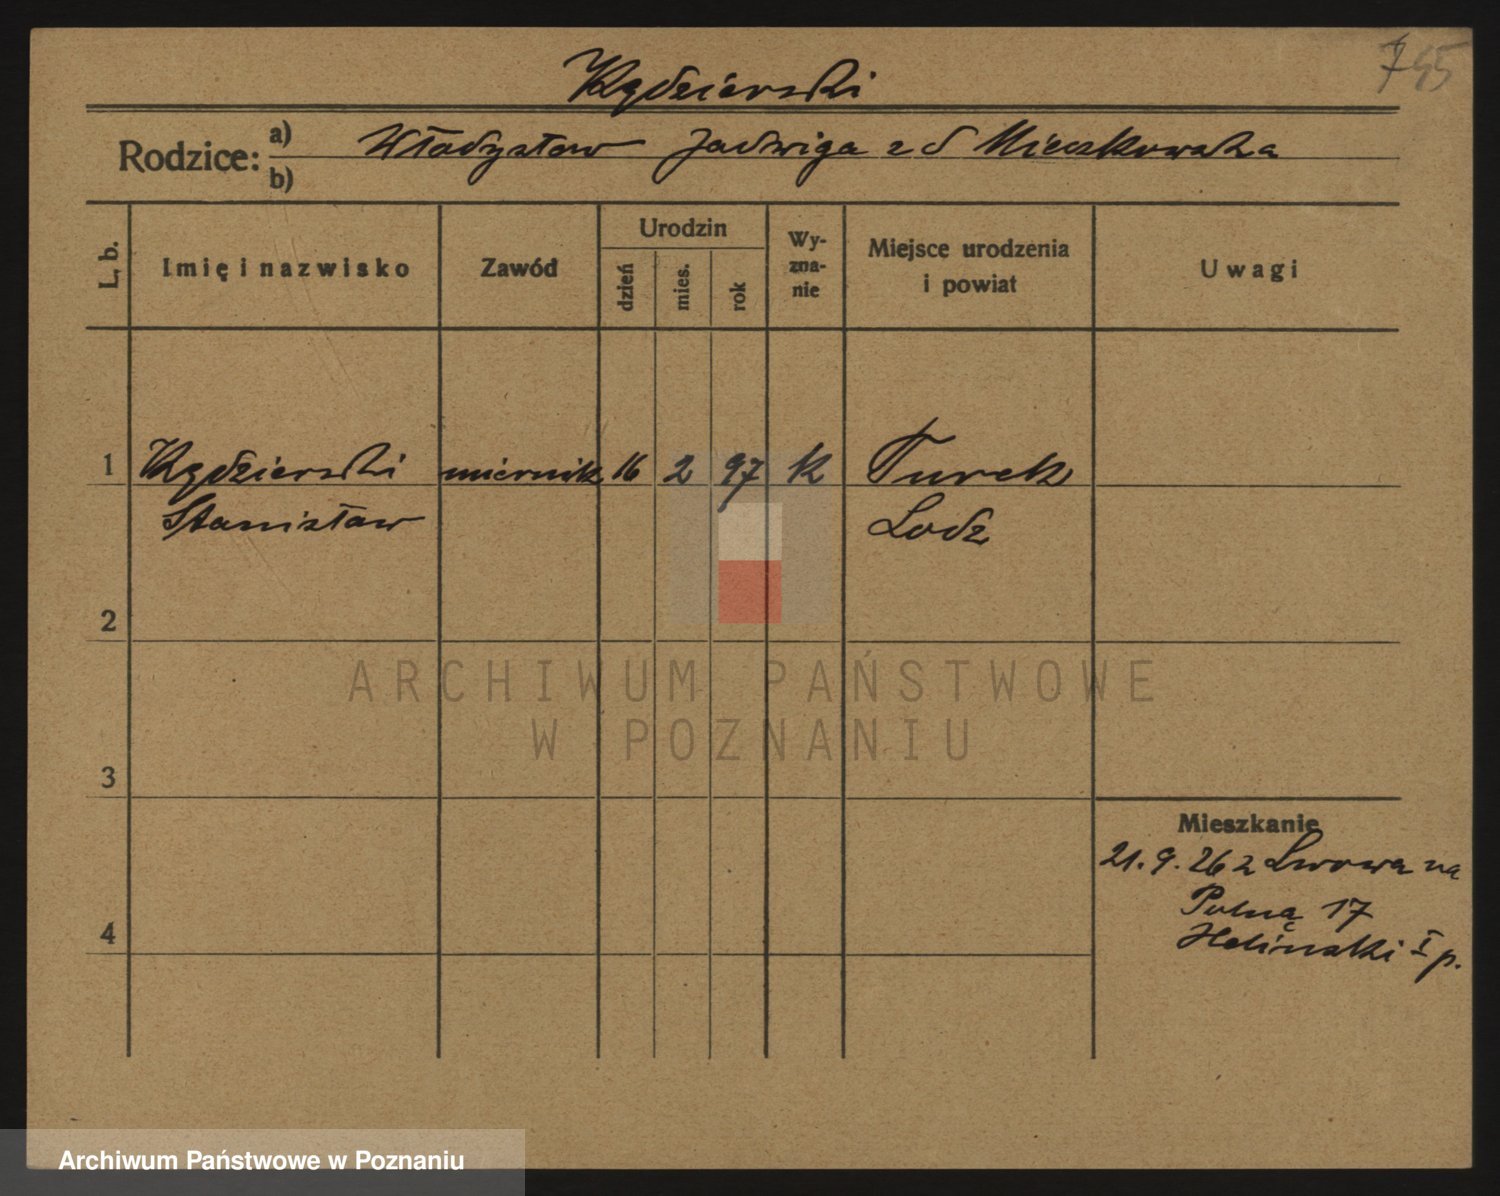 745
Kędzierski
Rodzice: a) Władysław Jadwiga z d Mieczkowska
b)
L. b. Imię i nazwisko Zawód Urodzin dzień mies. rok Wy-zna-nie Miejsce urodzenia i powiat Uwagi
1 Kędzierski miernik 16 2 97 k Turek
Stanisław Lodz
2
ARCHIWUM PAŃSTWOWE
W POZNANIU
3
Mieszkanie
21.9.26 z Lwowa na
Polną 17
4 I p.
Archiwum Państwowe w Poznaniu